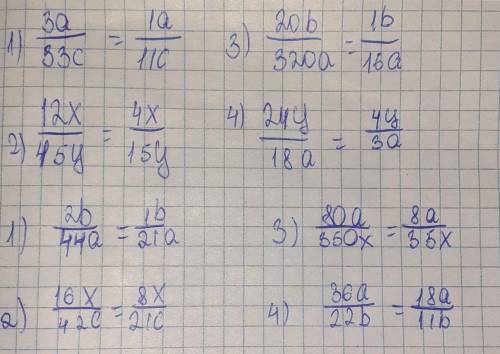 1) 3a/33c = 1a/11c
3) 20b/320a = 1b/16a
2) 12x/45y = 4x/15y
4) 24y/18a = 4y/3a
1) 2b/44a = 1b/21a
3) 80a/350x = 8a/35x
2) 16x/42c = 8x/21c
4) 36a/22b = 18a/11b